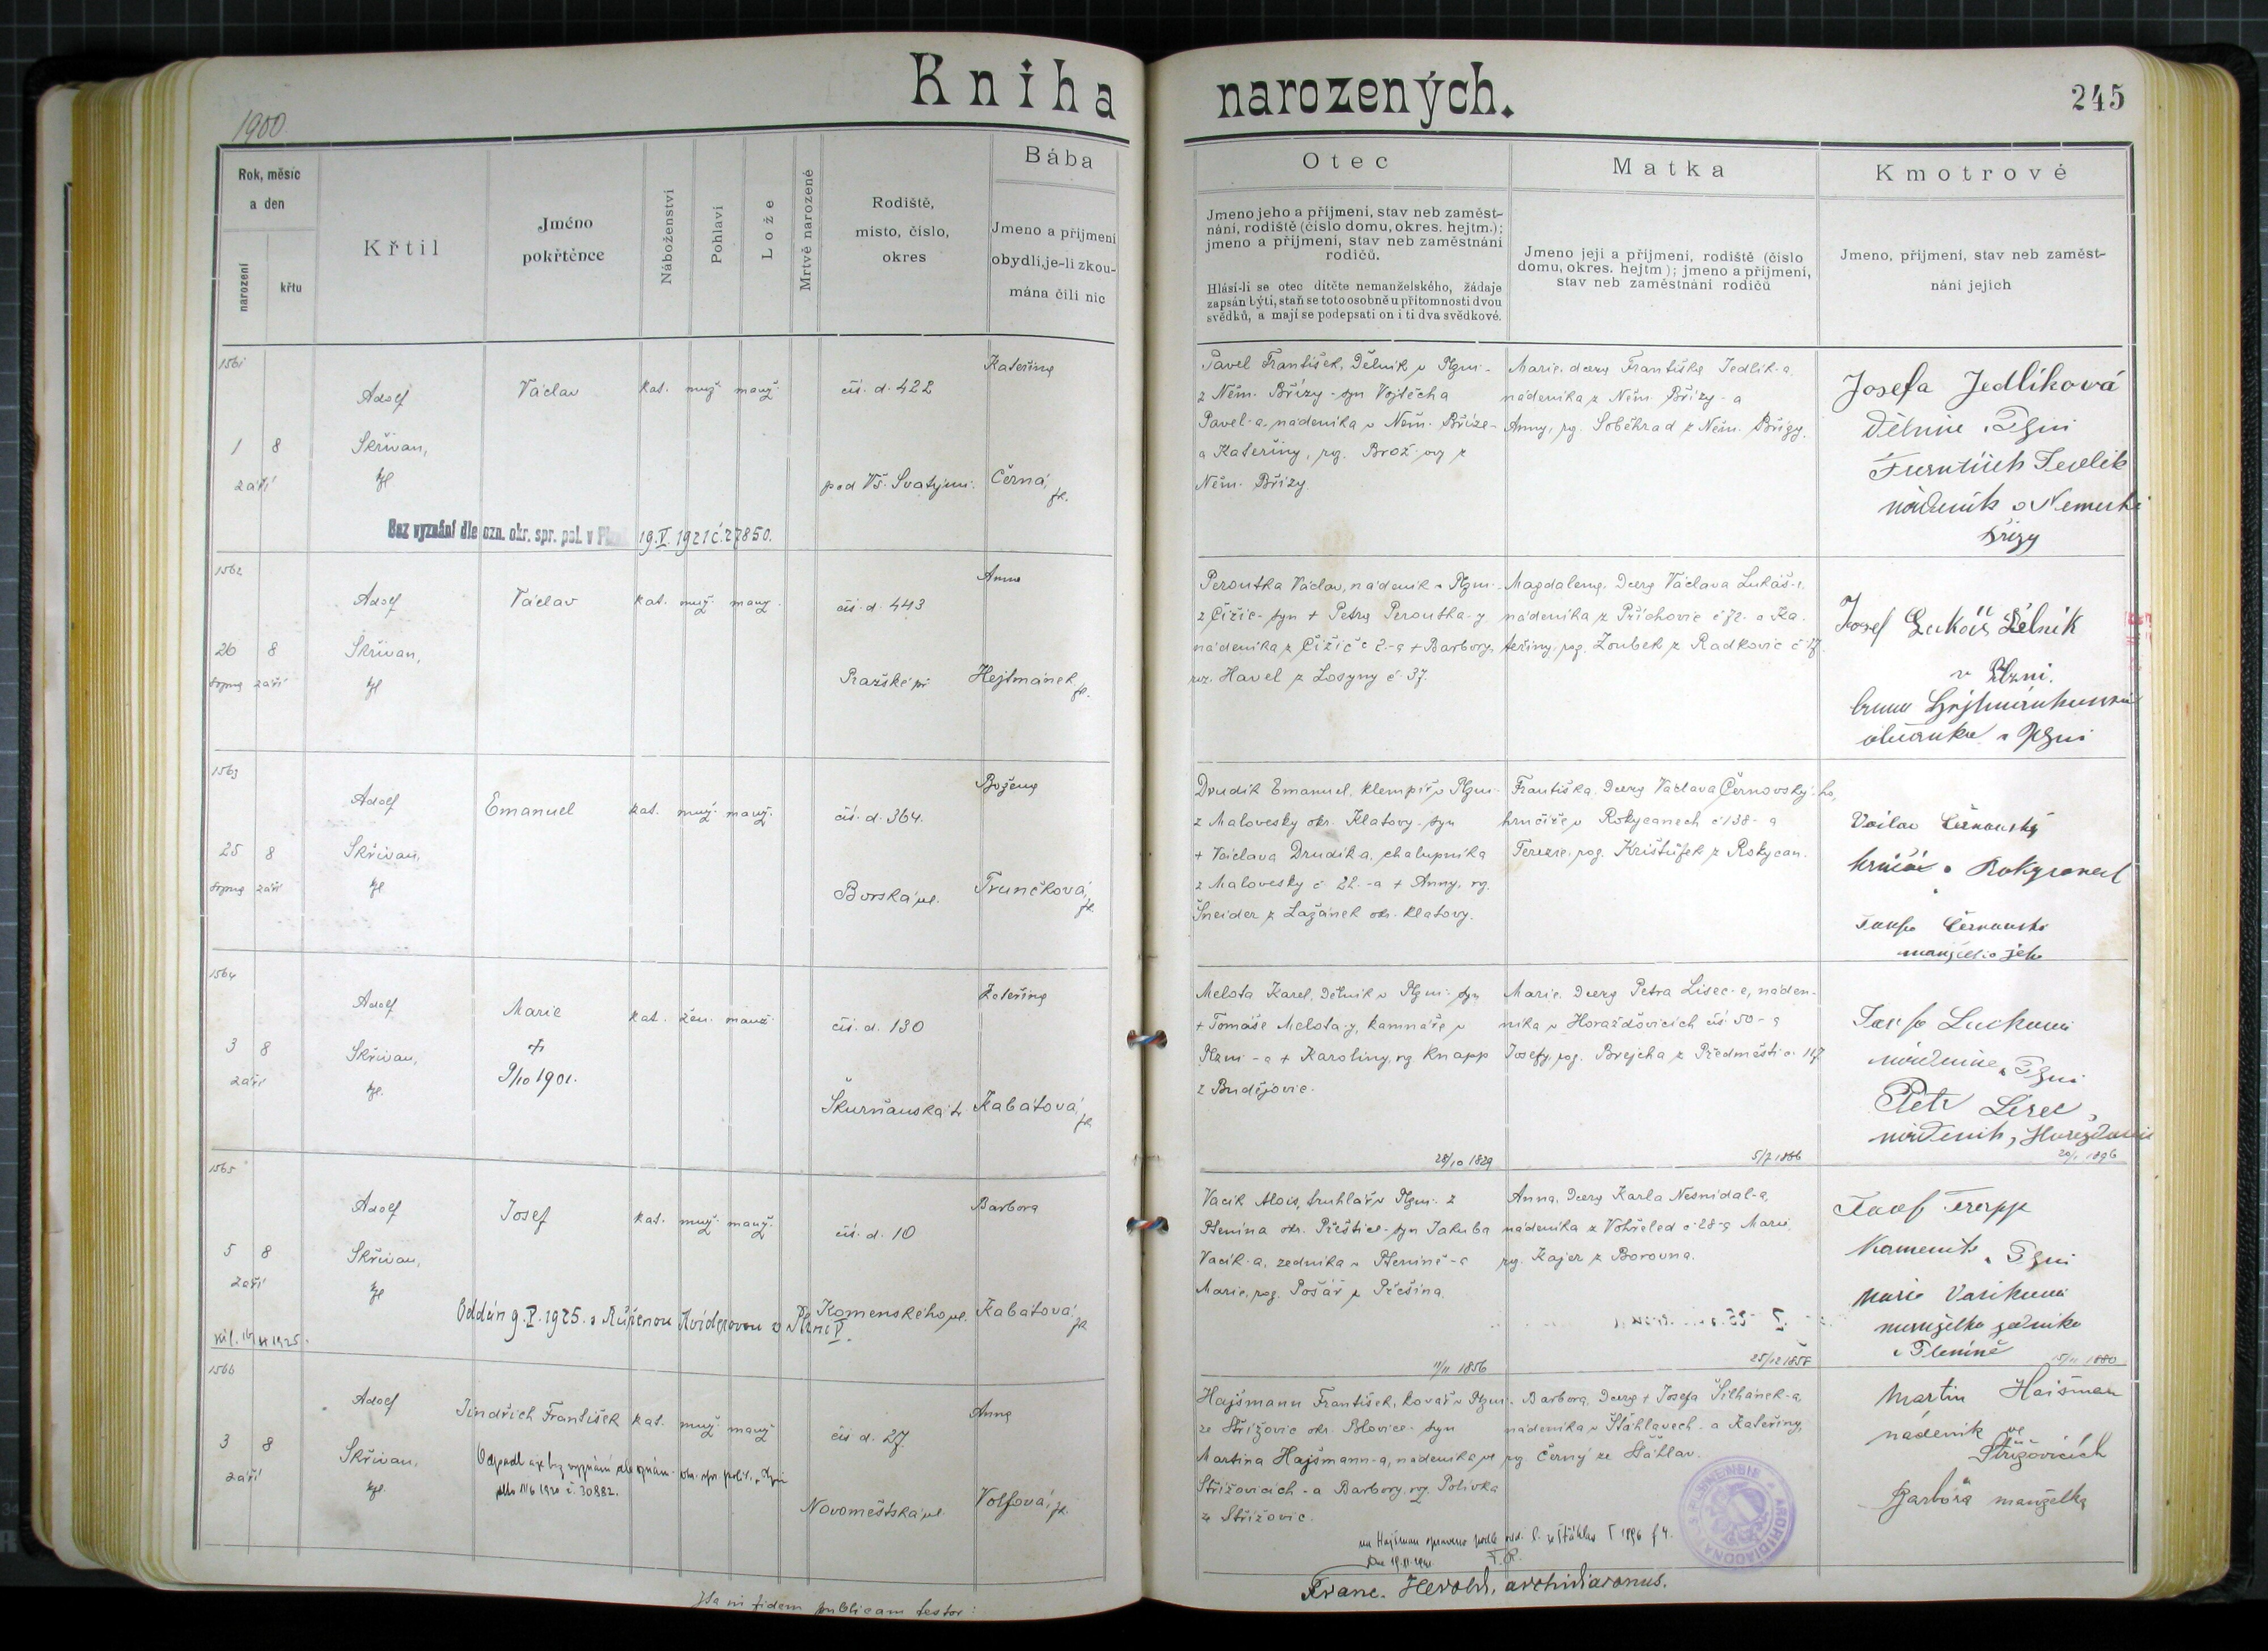 Kniha narozených.
245
1900
Rok, měsíc
a den
narození
křtu
Křtil
Jméno
pokřtěnce
Náboženství
Pohlaví
Lože
Mrtvě narozené
Rodiště,
místo, číslo,
okres
Bába
Jmeno a příjmení
obydlí, je-li zkou-
mána čili nic
Otec
Jmeno jeho a příjmení, stav neb zaměst-
nání, rodiště (číslo domu, okres. hejtm.);
jmeno a příjmení, stav neb zaměstnání
rodičů.
Hlásí-li se otec dítěte nemanželského, žádaje
zapsán býti, staň se toto osobně u přítomnosti dvou
svědků, a mají se podepsati on i ti dva svědkové.
Matka
Jmeno její a příjmení, rodiště (číslo
domu, okres. hejtm); jmeno a příjmení,
stav neb zaměstnání rodičů
Kmotrové
Jmeno, příjmení, stav neb zaměst-
nání jejich
1561
1 8
září
Adolf
Skřivan,
Václav
kat. muž. manž.
čís. d. 422
pod Vš. Svatými.
Kateřina
Černá,
Bez vyznání dle ozn. okr. spr. pol. v 19.V.1921 č.27850.
Pavel František, Dělník v Plzni -
z Něm. Břízy - syn Vojtěcha
Pavel-a, nádeníka v Něm. Bříze -
a Kateřiny, roz. Brož z
Něm. Břízy.
Marie, dcera Františka Jedlík-a,
nádeníka z Něm. Břízy - a
Anny, roz. Soběhrad z Něm. Břízy.
Josefa Jedlíková
Dělnice v Plzni
František Jedlík
nádeník
Břízy
1562
26 8
srpna září
Adolf
Skřivan,
Václav
kat. muž. manž.
čís. d. 443
Pražské př.
Anna
Hejtmánek
Peroutka Václav, nádeník v Plzni -
z Čižic - syn + Petra Peroutka-y
nádeníka z Čižic č 2. - a + Barbory,
roz. Havel z Losyny č. 37.
Magdalena, Dcera Václava Lukáš-e,
nádeníka z Příchovic č 72. a Ka-
teřiny, roz. Zoubek z Radkovic č 17.
Josef Lukáš Dělník
v Plzni.
v Plzni
1563
25 8
srpna září
Adolf
Skřivan,
Emanuel
kat. muž. manž.
čís. d. 364.
Borská ul.
Božena
Trunčková,
Drudík Emanuel, klempíř v Plzni -
z Malovesky okr. Klatovy - syn
+ Václava Drudík-a, chalupníka
z Malovesky č 22. - a + Anny, roz.
Šneider z Lažánek okr. Klatovy.
Františka, Dcera Václava Černovský-ho,
hrnčíře v Rokycanech č 138 - a
Terezie, roz. Krištůfek z Rokycan.
Václav Černovský
hrnčíř v
Černovská
manželka jeho
1564
3 8
září
Adolf
Skřivan,
Marie
+
9/10 1901.
kat. žen. manž.
čís. d. 130
Škurňanská t.
Kateřina
Kabátová,
Melota Karel, Dělník v Plzni - syn
+ Tomáše Melota-y, kamnáře v
Plzni - a + Karoliny, roz. Knapp
z Budějovic.
Marie, Dcera Petra Lisec-e, náden-
níka v Horažďovicích čís 50 - a
Josefy, roz. Brejcha z Předměstí č. 117
v Plzni
Petr Lisec,
nádeník,
28/10 1829
5/7 1866
20/1 1896
1565
5 8
září
Adolf
Skřivan,
Josef
kat. muž. manž.
čís. d. 10
Komenského ul.
Barbora
Kabátová,
Oddán 9.V.1925. s Růženou v Plzni V.
Vacík Alois, truhlář v Plzni - z
Ptenína okr. Přeštice - syn Jakuba
Vacík-a, zedníka v Pteníně - a
Marie, roz. Tošář z Přešína.
Anna, Dcera Karla Nesnídal-a,
nádeníka z Vohřeled č. 28 - a Marie
roz. Kajer z Borovna.
Kameník v Plzni
Marie Vacíková
manželka zedníka
v Pteníně
11/11 1856
25/12 1858
15/11 1880
1566
3 8
září
Adolf
Skřivan,
Jindřich František
kat. muž. manž
čís d. 27.
Novoměstská ul.
Anna
Volfová,
č. 30882.
Hajšmann František, kovář v Plzni -
ze Střížovic okr. Blovice - syn
Martina Hajšmann-a, nádeníka ve
Střížovicích - a Barbory, roz. Polívka
ze Střížovic.
Barbora, Dcera + Josefa Šilhánek-a,
nádeníka v Šťáhlavech - a Kateřiny,
roz. Černý ze Šťáhlav.
Martin Haišman
nádeník ve
Střížovicích
Barbora manželka
Franc. Herold, archidiaconus.
Ita in fidem publicam testor: